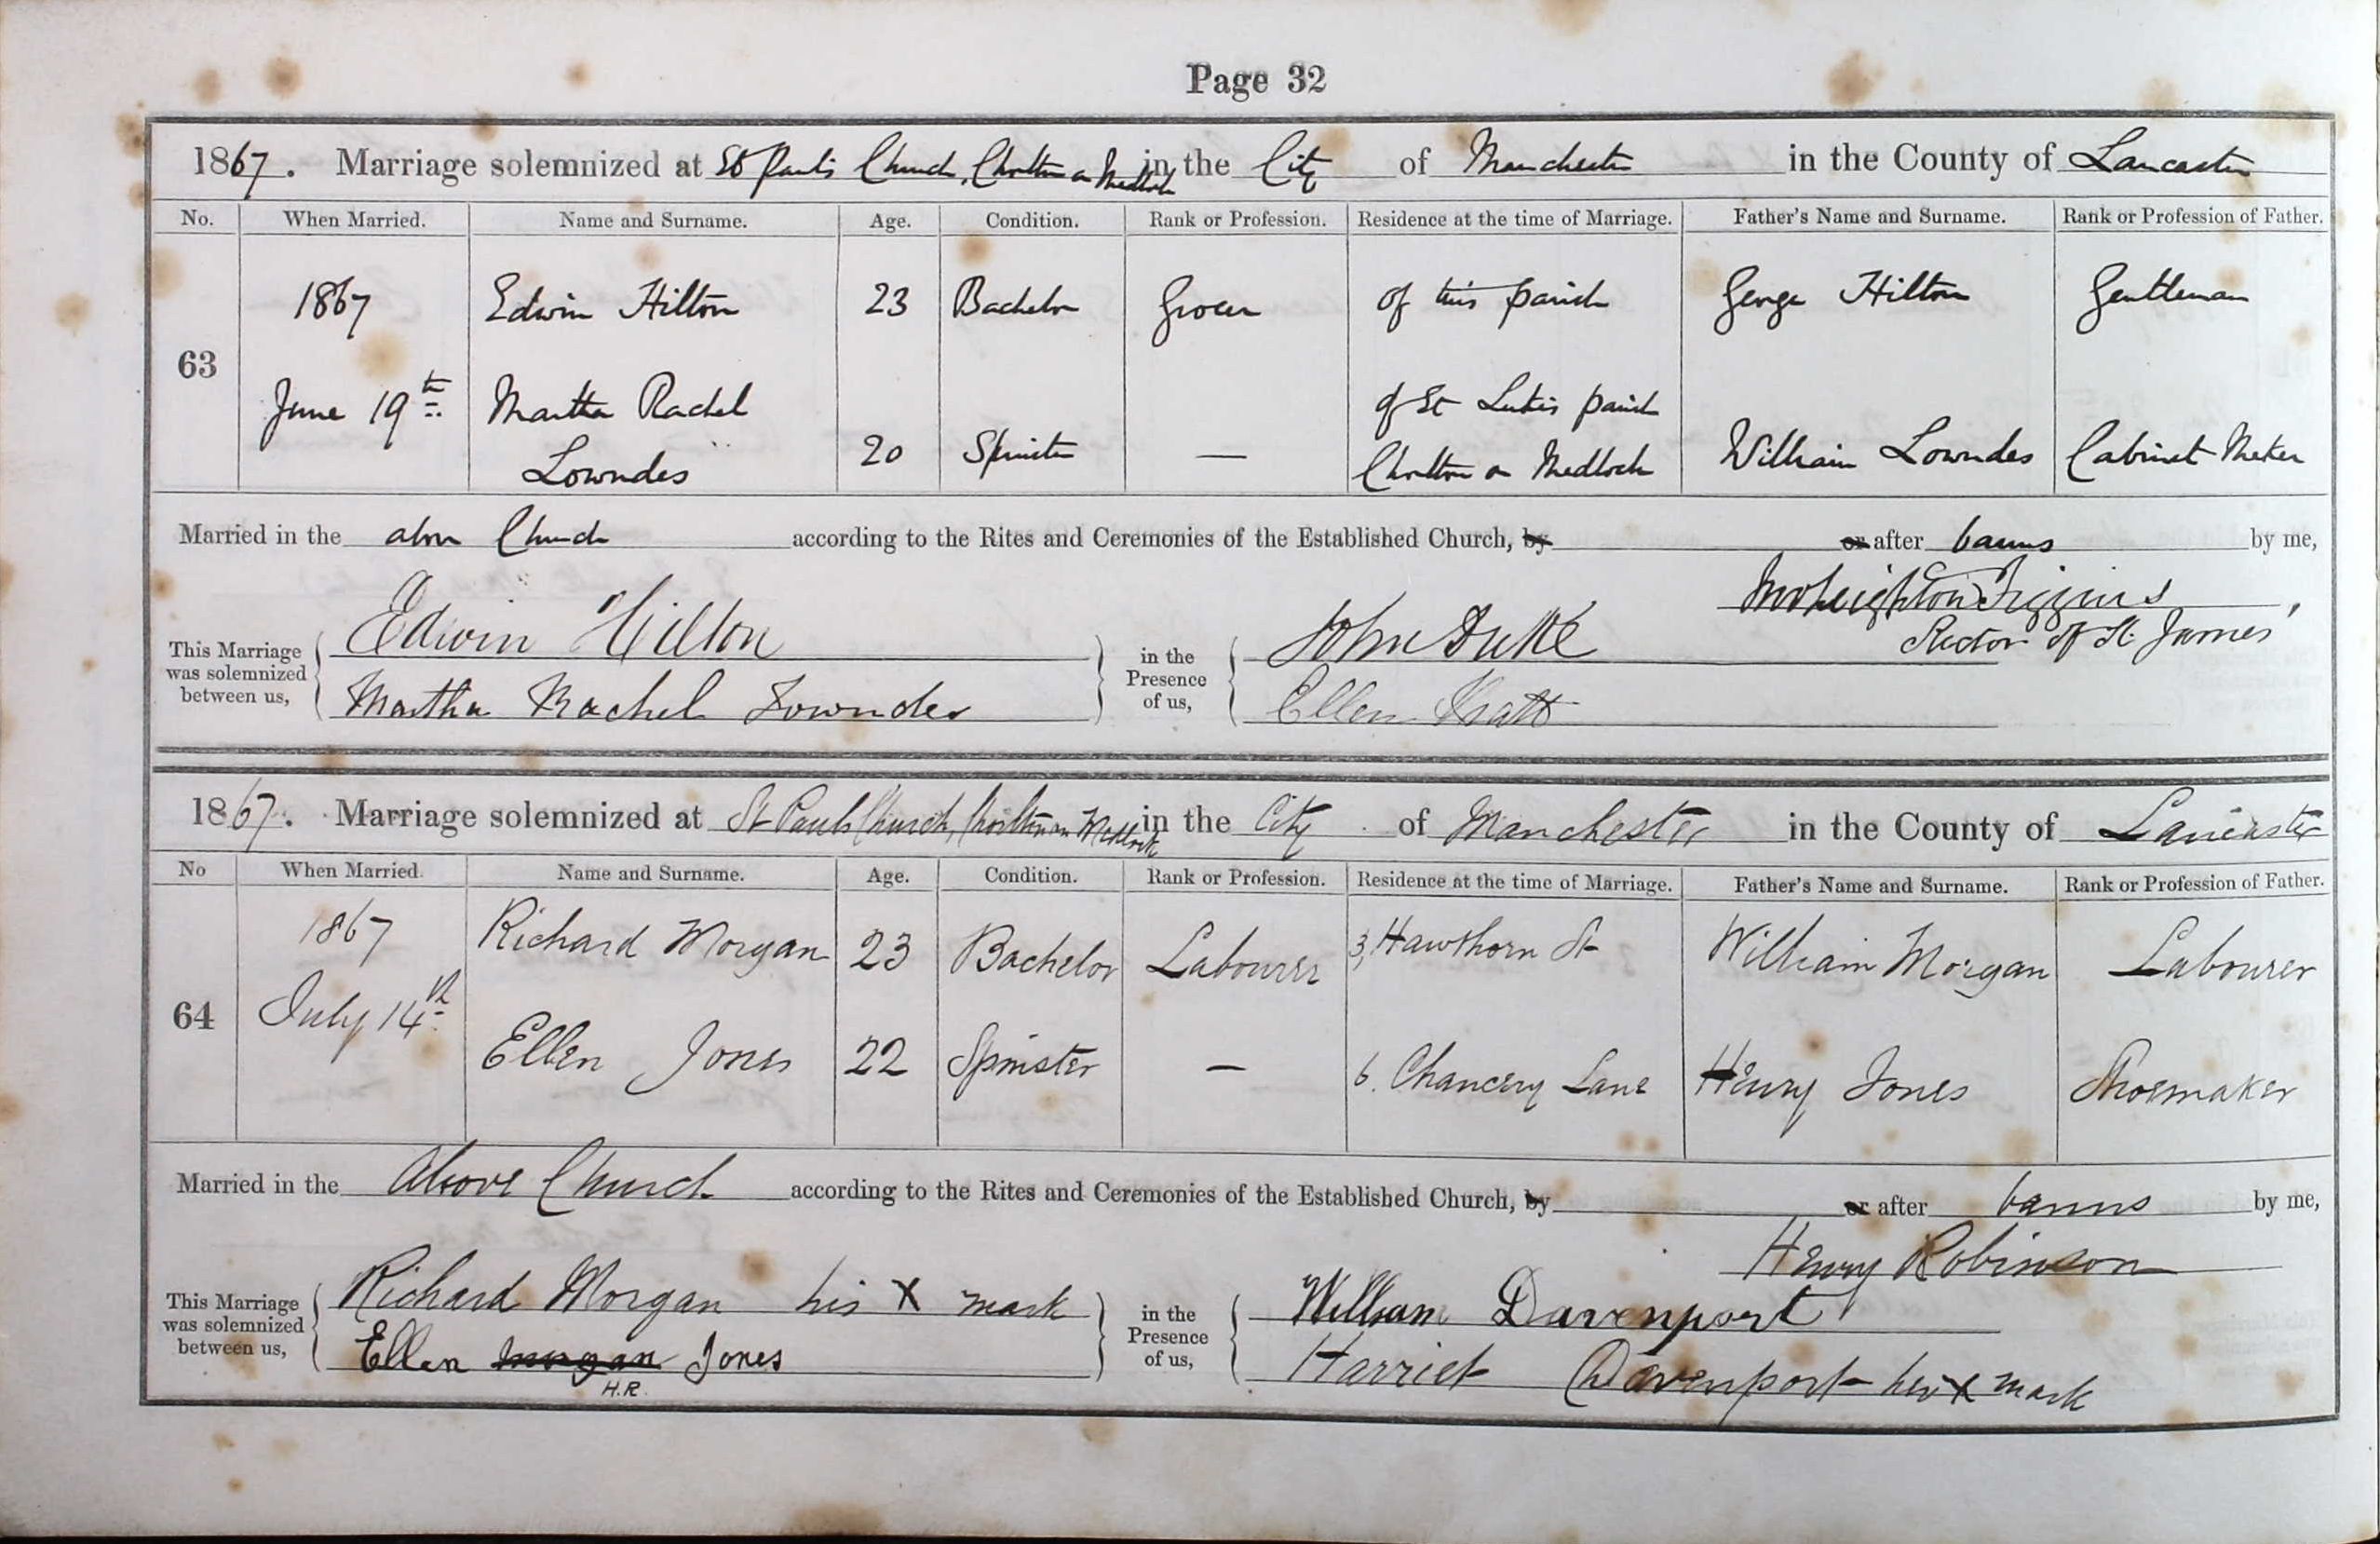 Page 32
1867. Marriage solemnized at St Paul's Church, Chorlton on Medlock in the City of Manchester in the County of Lancaster
No. When Married. Name and Surname. Age. Condition. Rank or Profession. Residence at the time of Marriage. Father's Name and Surname. Rank or Profession of Father.
1867 Edwin Hilton 23 Bachelor Grocer of this parish George Hilton Gentleman
63
June 19th Martha Rachel of St Luke's parish
Lowndes 20 Spinster — Chorlton on Medlock William Lowndes Cabinet Maker
Married in the above Church according to the Rites and Ceremonies of the Established Church, by or after banns by me,
Leighton Figgins
Rector of St. James'
This Marriage was solemnized between us, Edwin Hilton in the Presence of us, John Duke
Martha Rachel Lowndes Ellen
1867. Marriage solemnized at St Pauls Church, Chorlton on Medlock in the City of Manchester in the County of Lancaster
No When Married. Name and Surname. Age. Condition. Rank or Profession. Residence at the time of Marriage. Father's Name and Surname. Rank or Profession of Father.
1867 Richard Morgan 23 Bachelor Labourer 3, Hawthorn St William Morgan Labourer
64
July 14th Ellen Jones 22 Spinster — 6. Chancery Lane Henry Jones Shoemaker
Married in the above Church according to the Rites and Ceremonies of the Established Church, by or after banns by me,
Henry Robinson
This Marriage was solemnized between us, Richard Morgan his X mark in the Presence of us, William Davenport
Ellen Morgan Jones Harriet Davenport her X mark
H.R.